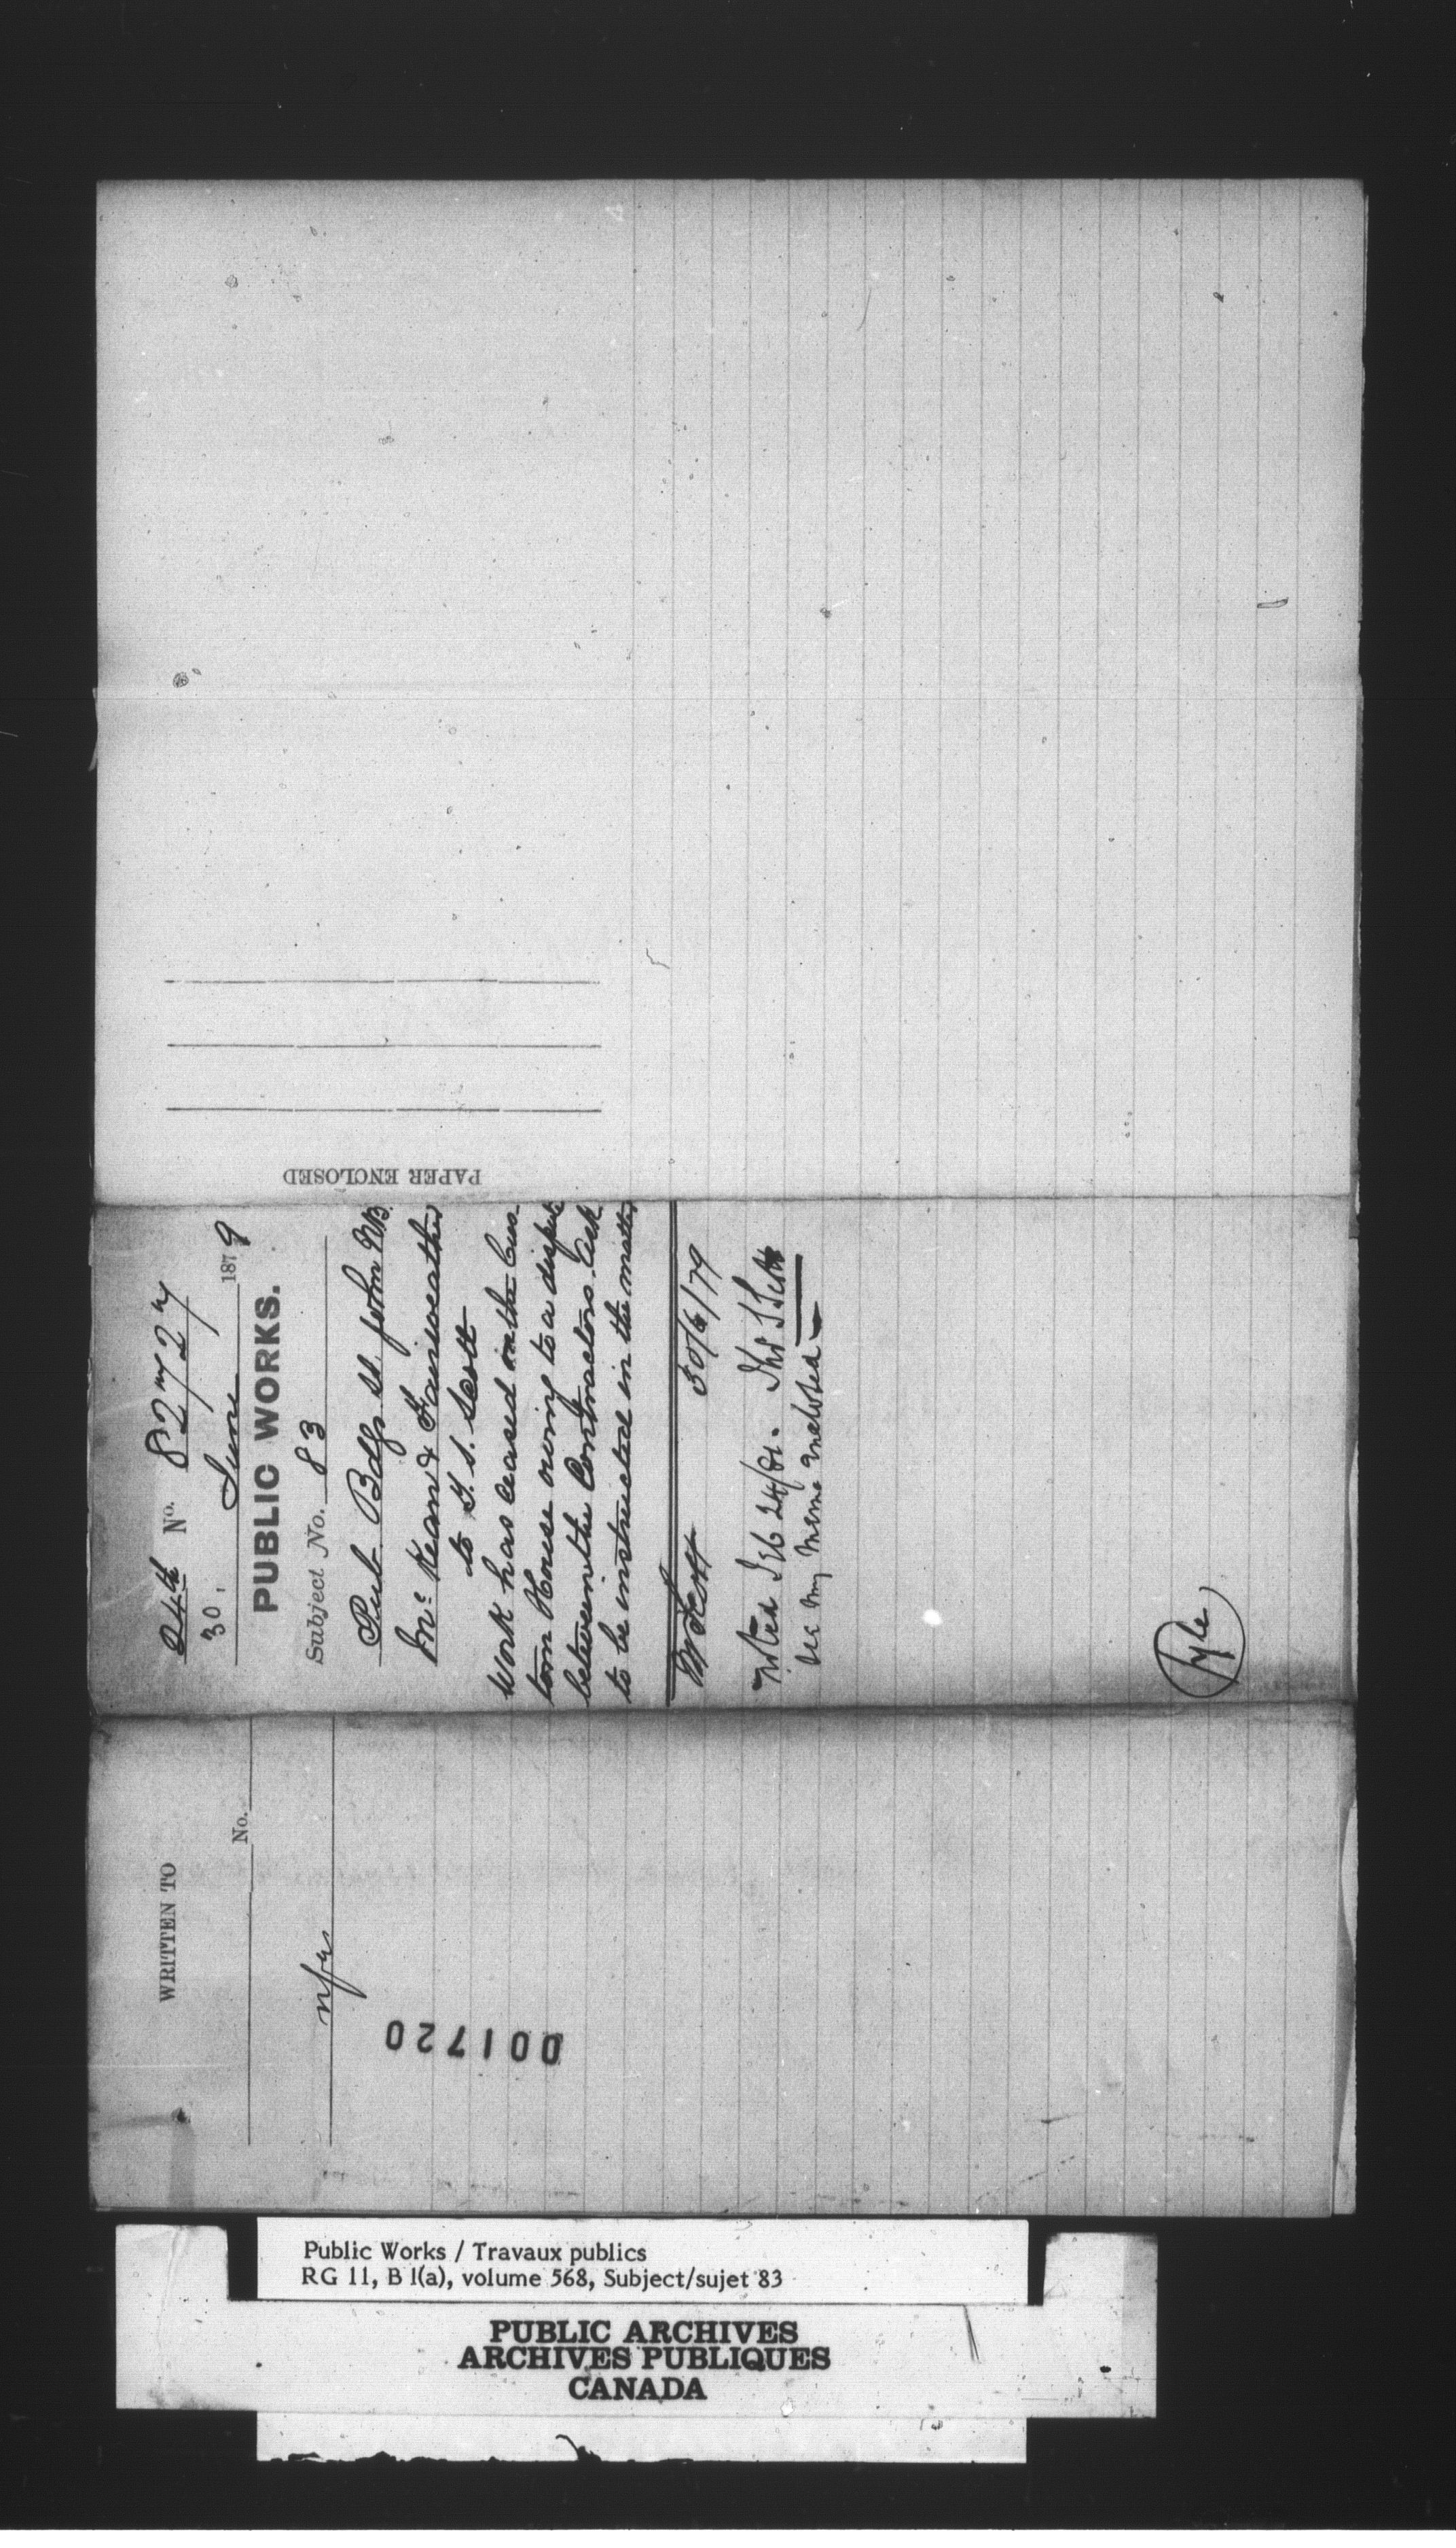 24th No. 82727
30, June 1879
PUBLIC WORKS.
Subject No. 83
Pub. Bdgs St. John NB.
McKean & Fairweather
to T. S. Scott
Work has ceased in the Cus-
tom House owing to a dispute
between the Contractors. Ask
to be instructed in the matter
Mr Scott 30/6/79
Noted Feb 24/81. Thos S Scott
See my memo enclosed
Fyle
PAPER ENCLOSED
WRITTEN TO
No.
nfa
001720
Public Works / Travaux publics
RG 11, B 1(a), volume 568, Subject/sujet 83
PUBLIC ARCHIVES
ARCHIVES PUBLIQUES
CANADA